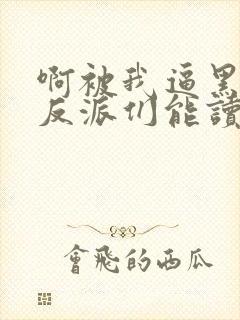 啊被我逼黑
反派们能讀
會飛的西瓜